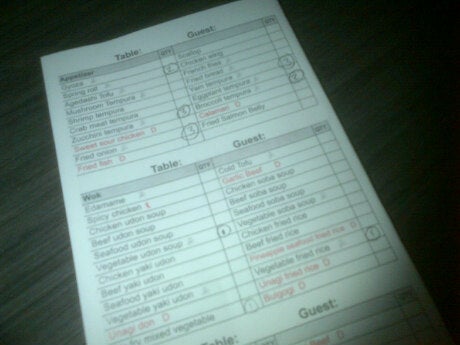 Table: Guest:
Appetizer QTY
Gyoza
Spring roll
Agedashi Tofu
Mushroom Tempura
Shrimp tempura
Crab meat tempura
Zucchini tempura
Sweet sour chicken D
Fried onion
Fried fish D
Scallop
Chicken wing
French fries
Fried bread
Yam tempura
Eggplant tempura
Broccoli tempura
Calamari D
Fried Salmon Belly
Table: Guest:
Wok QTY
Edamame
Spicy chicken
Chicken udon soup
Beef udon soup
Seafood udon soup
Vegetable udon soup
Chicken yaki udon
Beef yaki udon
Seafood yaki udon
Vegetable yaki udon
Unagi don D
mixed vegetable
Cold Tofu
Garlic Beef D
Chicken soba soup
Beef soba soup
Seafood soba soup
Vegetable soba soup
Chicken fried rice
Beef fried rice
Pineapple seafood fried rice D
Vegetable fried rice
Unagi fried rice D
Bulgogi D
Table: Guest:
QTY